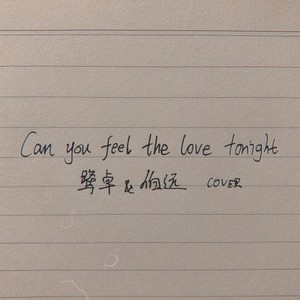 Can you feel the love tonight
鹭卓 & 伯远 COVER